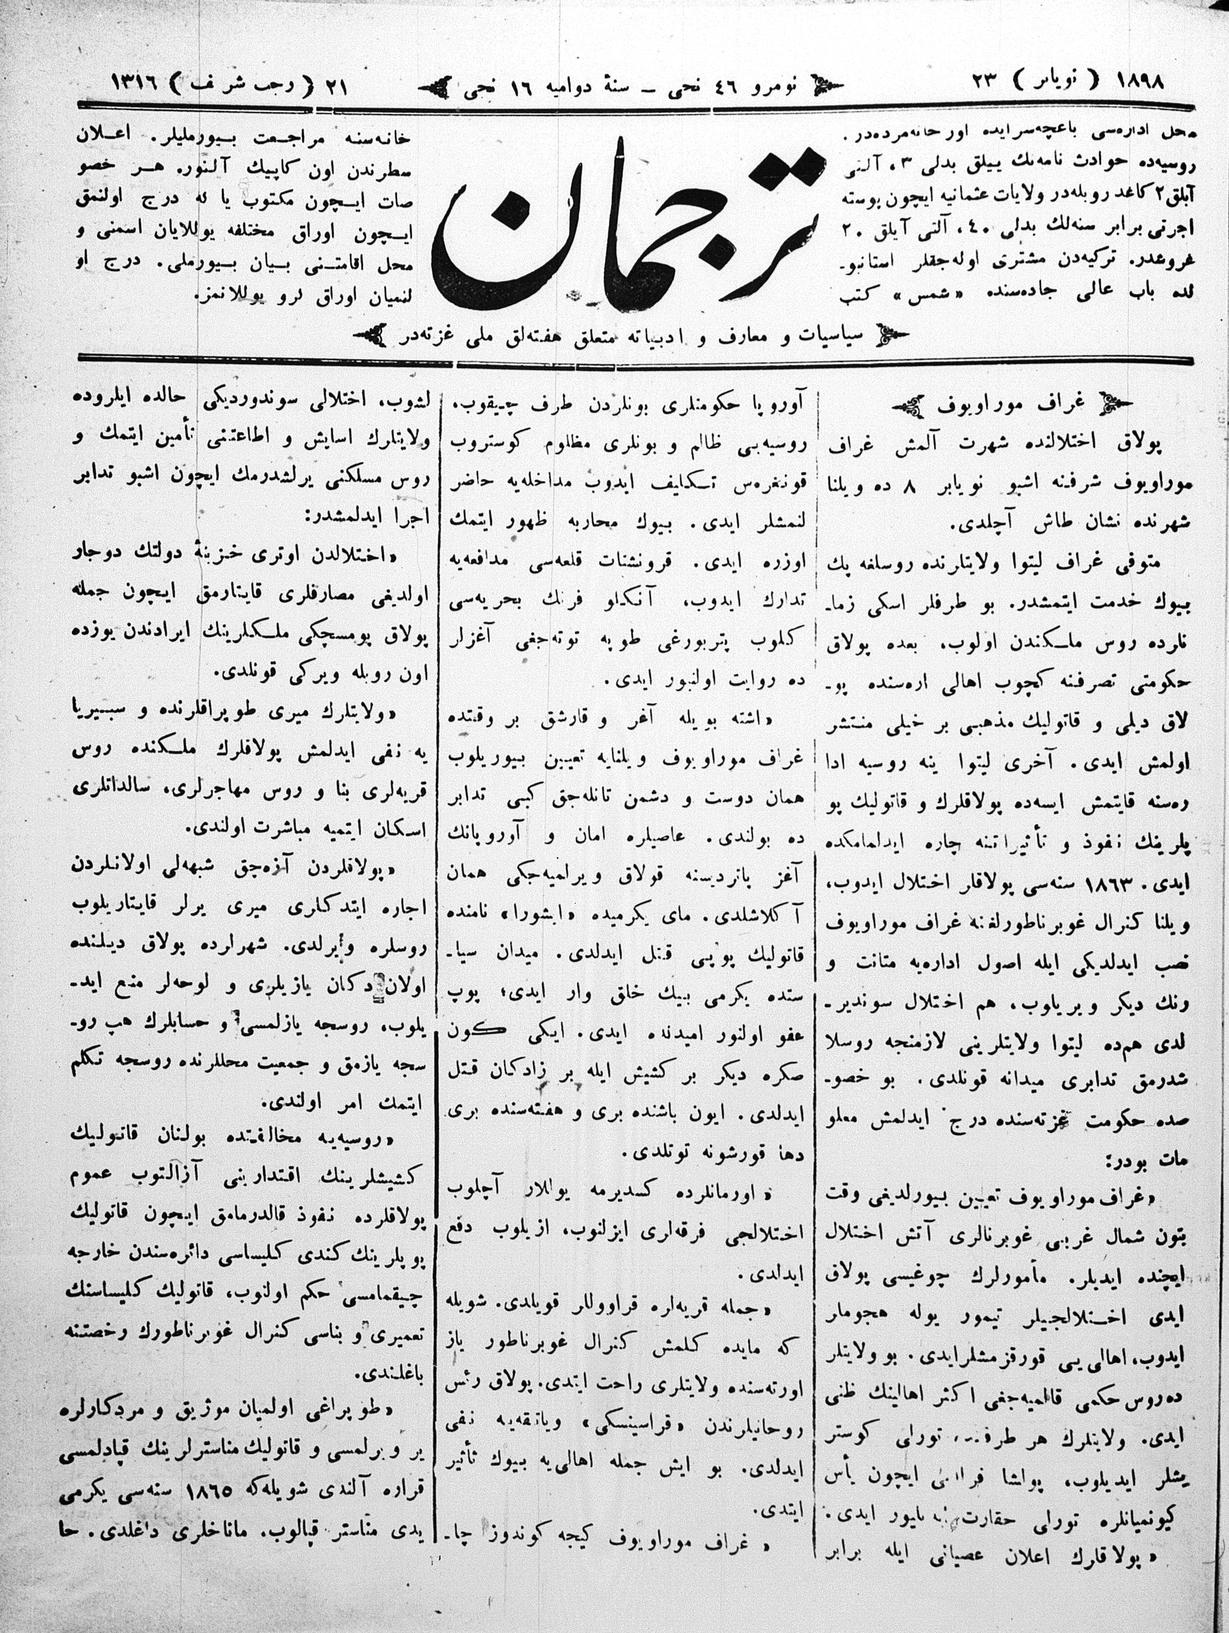 ١٨٩٨ ( نویابر ) ٢٣
نومرو ٤٦ نحی – سنهٔ دوامیه ١٦ نحی
٢١ ( رجب شریف ) ١٣١٦
محل اداره‌سی باغچه‌سرایده اورخانه‌مزده‌در.
روسیه‌ده حوادث نامه‌نك ییلق بدلی ٣، آلتی
آیلق ٢ کاغد روبله‌در ولایات عثمانیه ایچون پوسته
اجرتی برابر سنه‌لك بدلی ٤٠، آلتی آیلق ٢٠
غروشدر. ترکیه‌دن مشتری اوله‌جقلر استانبو-
لده باب عالی جاده‌سنده «شمس» کتب
ترجمان
خانه‌سنه مراجعت بیورملیلر. اعلان
سطرندن اون کاپیك آلنور. هر خصو
صات ایچون مکتوب یا که درج اولنمق
ایچون اوراق مختلفه یوللایان اسمنی و
محل اقامتنی بیان بیورملی. درج او
لنمیان اوراق کرو یوللانمز.
سیاسیات و معارف و ادبیاته متعلق هفته‌لق ملی غزته‌در
غراف موراویوف
پولاق اختلالنده شهرت آلمش غراف
موراویوف شرفنه اشبو نویابر ٨ ده ویلنا
شهرنده نشان طاش آچلدی.
متوفی غراف لیتوا ولایتلرنده روسلغه پك
بیوك خدمت ایتمشدر. بو طرفلر اسکی زما-
نلرده روس ملکندن اولوب، بعده پولاق
حکومتی تصرفنه کچوب اهالی اره‌سنده پو-
لاق دیلی و قاتولیك مذهبی بر خیلی منتشر
اولمش ایدی. آخری لیتوا ینه روسیه ادا
ره‌سنه قایتمش ایسه‌ده پولاقلرك و قاتولیك پو
پلرینك نفوذ و تأثیراتنه چاره ایدلمامکده
ایدی. ١٨٦٣ سنه‌سی پولاقلر اختلال ایدوب،
ویلنا کنرال غوبرناطورلغنه غراف موراویوف
نصب ایدلدیکی ایله اصول اداره‌یه متانت و
رنك دیکر ویریلوب، هم اختلال سوندیر-
لدی هم‌ده لیتوا ولایتلرینی لازمنجه روسلا
شدرمق تدابری میدانه قونلدی. بو خصو-
صده حکومت غزته‌سنده درج ایدلمش معلو
مات بودر:
«غراف موراویوف تعیین بیورلدیغی وقت
بتون شمال غربی غوبرنالری آتش اختلال
ایچنده ایدیلر. مأمورلرك چوغیسی پولاق
ایدی اختلالجیلر تیمور یوله هجوملر
ایدوب، اهالی‌یی قورقزمشلرایدی. بو ولایتلر
ده روس حکمی قالمیه‌جغی اکثر اهالینك ظنی
ایدی. ولایتلرك هر طرفنده تورلی کوستر
یشلر ایدیلوب، پولشا ایچون یأس
کیونمیانلره تورلی حقارت ایدی.
«پولاقلرك اعلان عصیانی ایله برابر
آوروپا حکومتلری بونلردن طرف چیقوب،
روسیه‌یی ظالم و بونلری مظلوم کوستروب
قونغره‌س تکلیف ایدوب مداخله‌یه حاضر
لنمشلر ایدی. بیوك محاربه ظهور ایتمك
اوزره ایدی. قرونشتات قلعه‌سی مدافعه‌یه
تدارك ایدوب، آنکلو فرنك بحریه‌سی
کلوب پتربورغی طوپه توته‌جغی آغزلر
ده روایت اولنیور ایدی.
«اشته بویله آغر و قارشق بر وقتده
غراف موراویوف ویلنایه تعیین بیوریلوب
همان دوست و دشمن تانله‌جق کبی تدابر
ده بولندی. عاصیلره امان و آوروپانك
آغز پاتردیسنه قولاق ویرلمیه‌جکی همان
آکلاشلدی. مای یکرمیده «ایشورا» نامنده
قاتولیك پوپی قتل ایدلدی. میدان سیا-
ستده یکرمی بیك خلق وار ایدی؛ پوپ
عفو اولنور امیدنده ایدی. ایکی کون
صکره دیکر بر کشیش ایله بر زادکان قتل
ایدلدی. ایون باشنده بری و هفته‌سنده بری
دها قورشونه توتلدی.
«اورمانلرده کسدیرمه یوللار آچلوب
اختلالجی فرقه‌لری ایزلنوب، ازیلوب دفع
ایدلدی.
«جمله قریه‌لره قراووللر قویلدی. شویله
که مایده کلمش کنرال غوبرناطور یاز
اورته‌سنده ولایتلری راحت ایتدی. پولاق رئس
روحانیلرندن «قراسینسکی» ویاتقه‌یه نفی
ایدلدی. بو ایش جمله اهالی‌یه بیوك تأثیر
ایتدی.
«غراف موراویوف کیجه کوندوز چا-
لشوب، اختلالی سوندوردیکی حالده ایلروده
ولایتلرك اسایش و اطاعتنی تأمین ایتمك و
روس مسلکنی یرلشدرمك ایچون اشبو تدابر
اجرا ایدلمشدر:
«اختلالدن اوتری خزینهٔ دولتك دوچار
اولدیغی مصارفلری قایتارمق ایچون جمله
پولاق پومسچکی ملکلرینك ایرادندن یوزده
اون روبله ویرکی قونلدی.
«ولایتلرك میری طوپراقلرنده و سبیریا
یه نفی ایدلمش پولاقلرك ملکنده روس
قریه‌لری بنا و روس مهاجرلری، سالداتلری
اسکان ایتمیه مباشرت اولندی.
«پولاقلردن آزه‌جق شبهه‌لی اولانلردن
اجاره ایتدکلری میری یرلر قایتاریلوب
روسلره ویرلدی. شهرلرده پولاق دیلنده
اولان دکان یازیلری و لوحه‌لر منع اید-
یلوب، روسجه یازلمسی و حسابلرك هپ رو-
سجه یازمق و جمعیت محللرنده روسجه تکلم
ایتمك امر اولندی.
«روسیه‌یه مخالفتده بولنان قاتولیك
کشیشلرینك اقتدارینی آزالتوب عموم
پولاقلرده نفوذ قالدرمامق ایچون قاتولیك
پوپلرینك کندی کلیساسی دائره‌سندن خارجه
چیقمامسی حکم اولنوب، قاتولیك کلیساسنك
تعمیری و بناسی کنرال غوبرناطورك رخصتنه
باغلندی.
«طوپراغی اولمیان موژیق و مردکارلره
یر ویرلمسی و قاتولیك مناسترلرینك قپادلمسی
قراره آلندی شویله‌که ١٨٦٥ سنه‌سی یکرمی
یدی مناستر قپالوب، ماناخلری داغلدی. حا